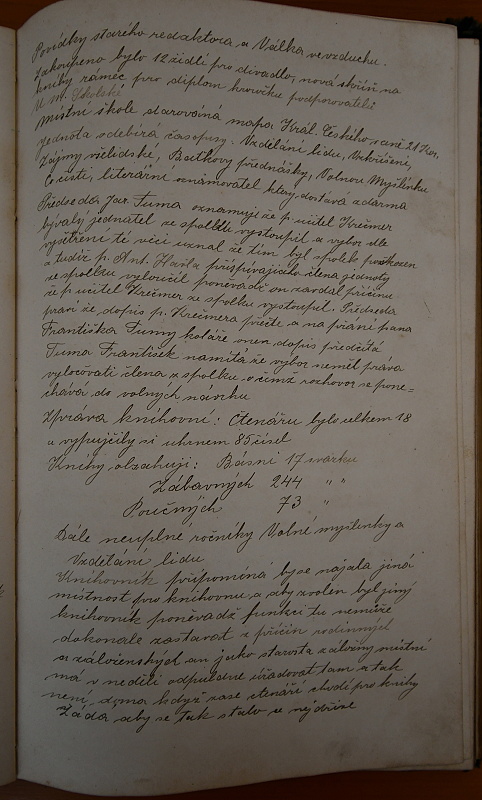 Povídky starého redaktora a Válka ve vzduchu.
Zakoupeno bylo 12 židlí pro divadlo, nová skříň na
knihy rámec pro diplom hrovičku podporovatelů
U. M. Školské
Místní škole darována mapa Král. Českého v ceně 21 Kor.
Jednota odebírá časopisy: Vzdělání lidu, Vzkříšení,
Zájmy všelidské, Bartkovy přednášky, Volnou Myšlénku
Co čísti, literární oznamovatel který dostává zdarma
Předseda Jar. Tuma oznamuje že p. učitel Krečmer
bývalý jednatel ze spolku vystoupil a výbor dle
vyšetření té věci uznal že tím byl spolek poškozen
a tudíž p. Ant. přispívajícího člena jednoty
ze spolku vyloučil poněvadž on zavdal příčinu
že p. učitel Krečmer ze spolku vystoupil. Předseda
praví že dopis p. Krečmera přečte a na přání pana
Františka Tumy koláře onen dopis předčítá
Tuma František namítá že výbor neměl práva
vyločovati člena z spolku o čimž rozhovor se pone-
chává do volných návrhů
Zpráva knihovní: Čtenářu bylo celkem 18
a vypujčily si uhrnem 85 čísel
Knihy obsahují: Básní 17 svazku
Zábavných 244 " "
Poučných 73 "
Dále neuplné ročníky Volné myšlenky a
Vzdělání lidu
Knihovník připomíná by se najala jiná
místnost pro knihovnu, a aby zvolen byl jiný
knihovník poněvadž funkci tu nemůže
dokonale zastávat z příčin rodinných
a záloženských an jako starosta záložny místní
má v neděli odpuldne úřadovat tam a tak
není doma když zase čtenáři chodí pro knihy
Žádá aby se tak stalo co nejdříve